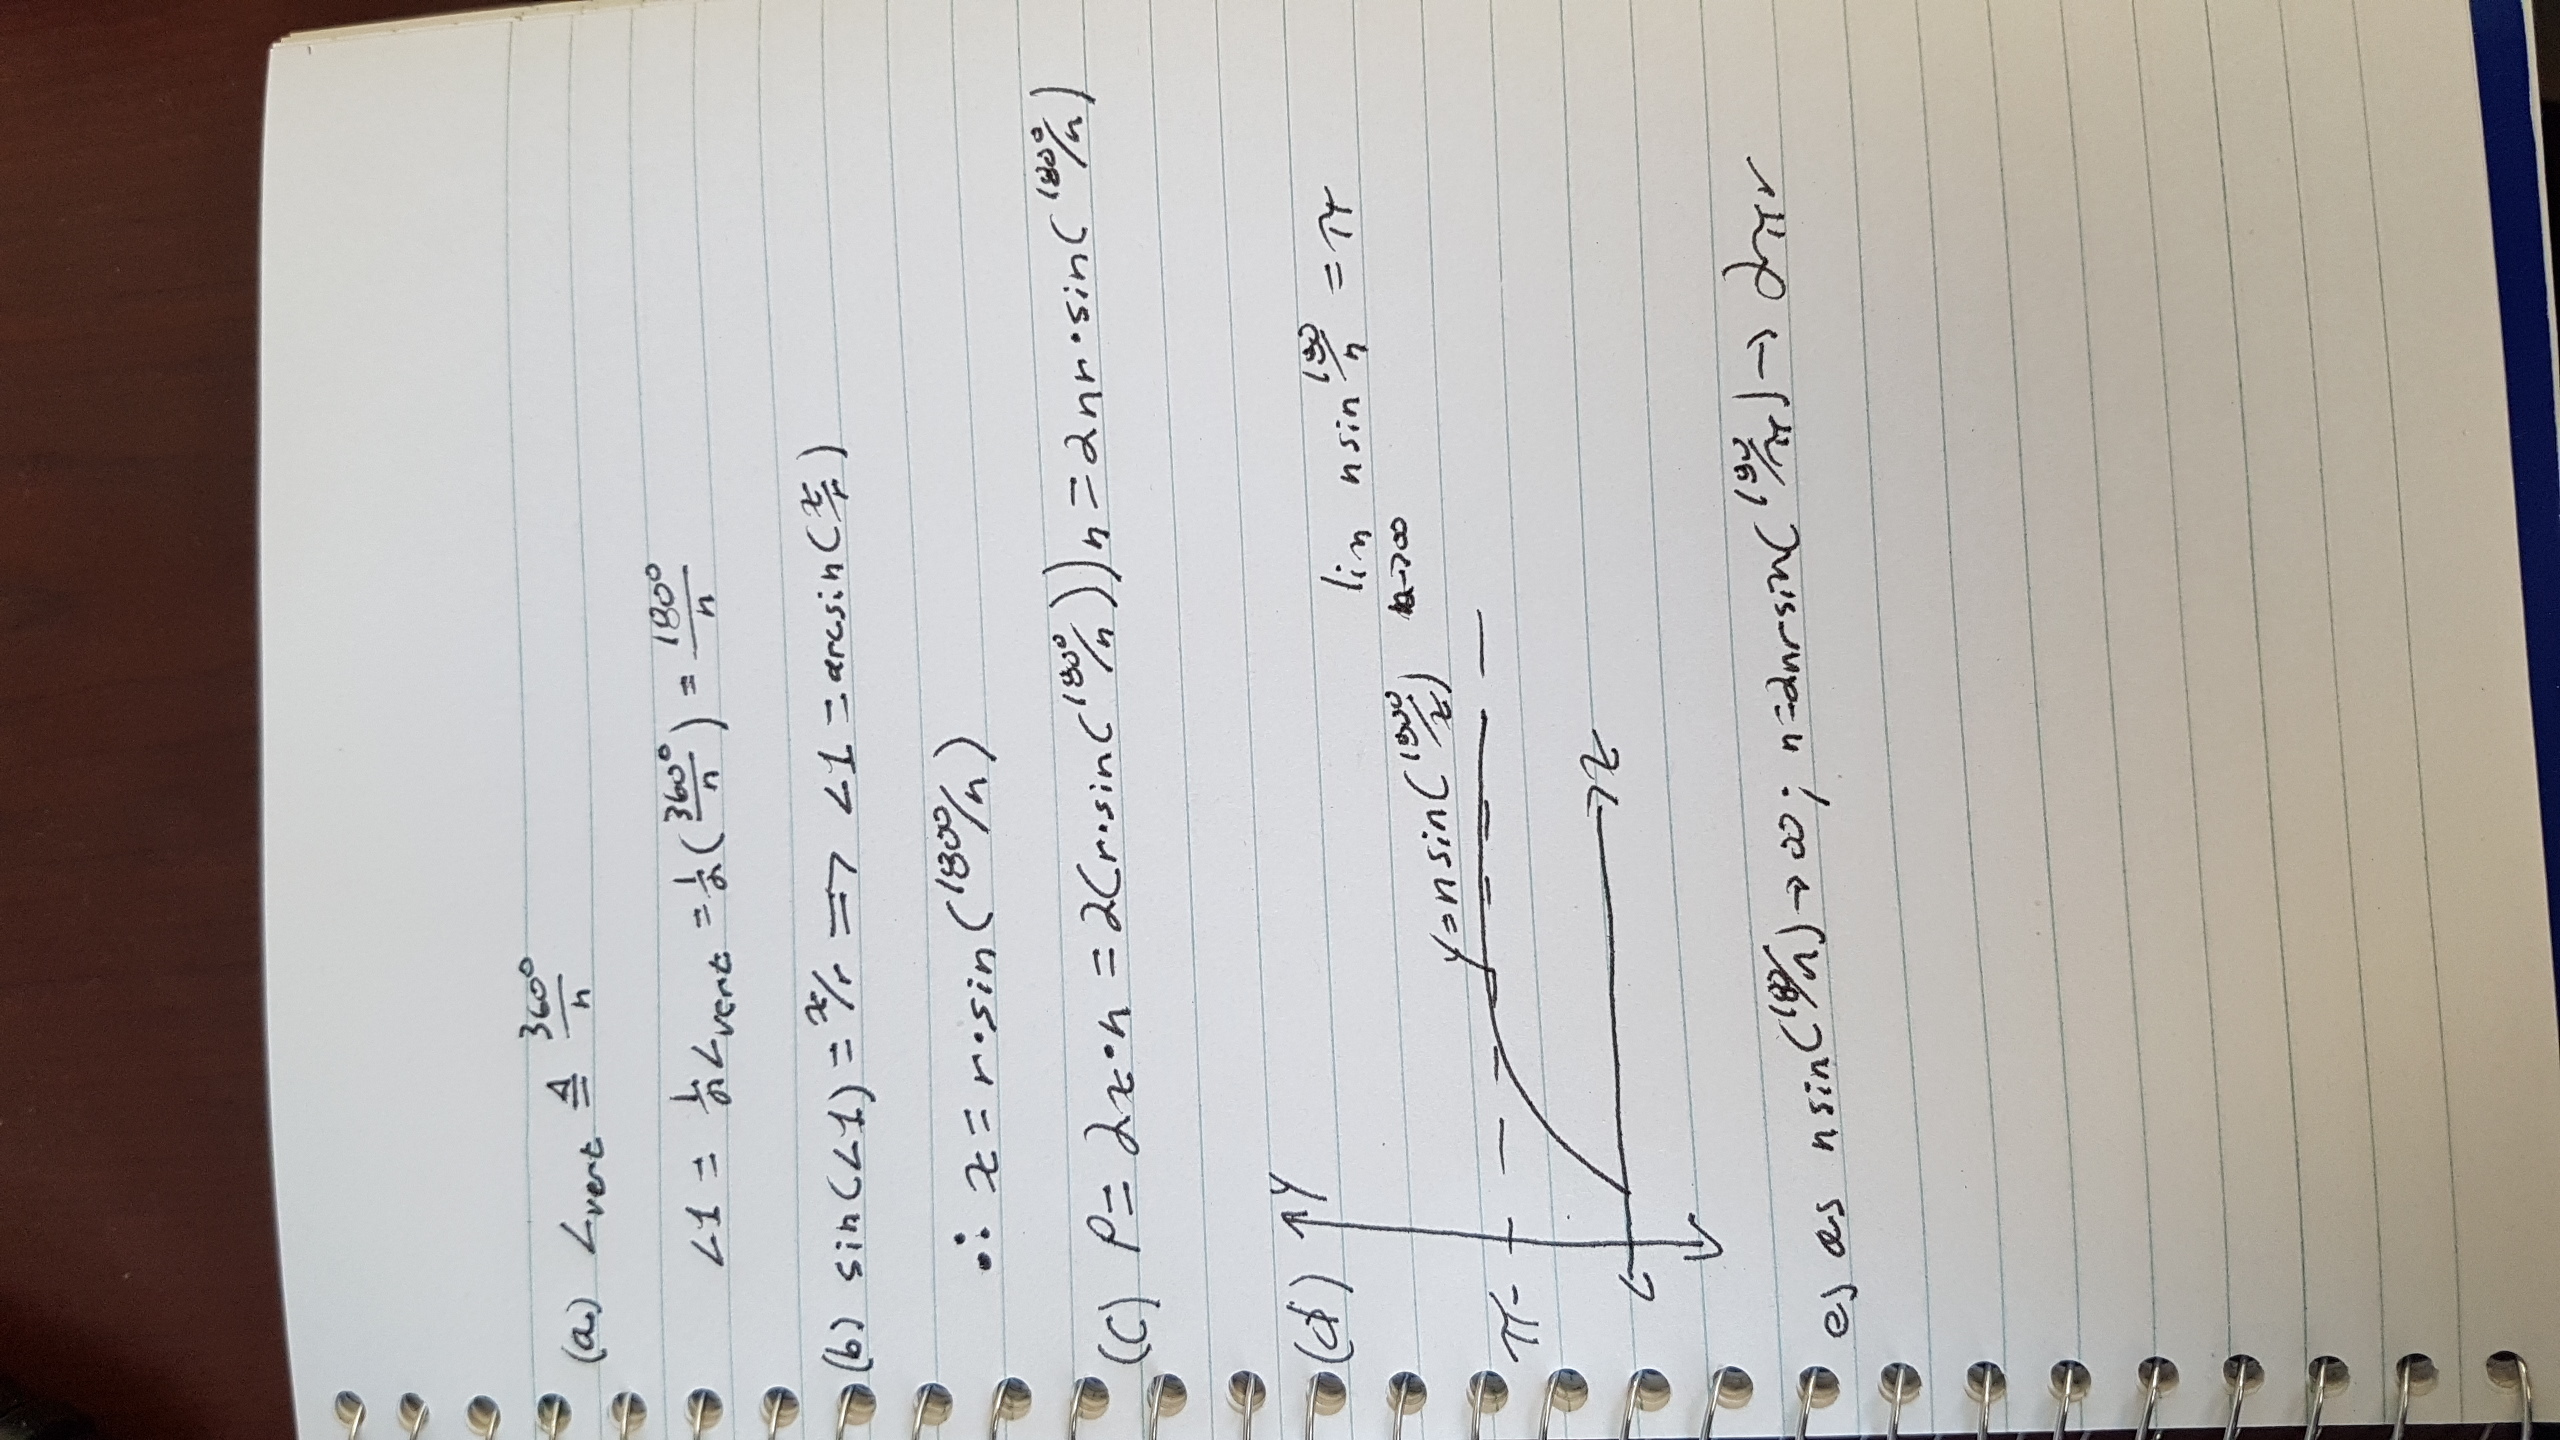 (a) ∠vert ≜ 360°/n
∠1 = ½∠vert = ½(360°/n) = 180°/n
(b) sin(∠1) = x/r ⇒ ∠1 = arcsin(x/r)
∴ x = r·sin(180°/n)
(c) P = 2x·n = 2(r·sin(180°/n))n = 2nr·sin(180°/n)
(d) y
lim n sin 180/n = π
n→∞
y = n sin(180°/x)
π
x
e) as n sin(180/n) → ∞; n → 2nr sin(180/π) → 2πr